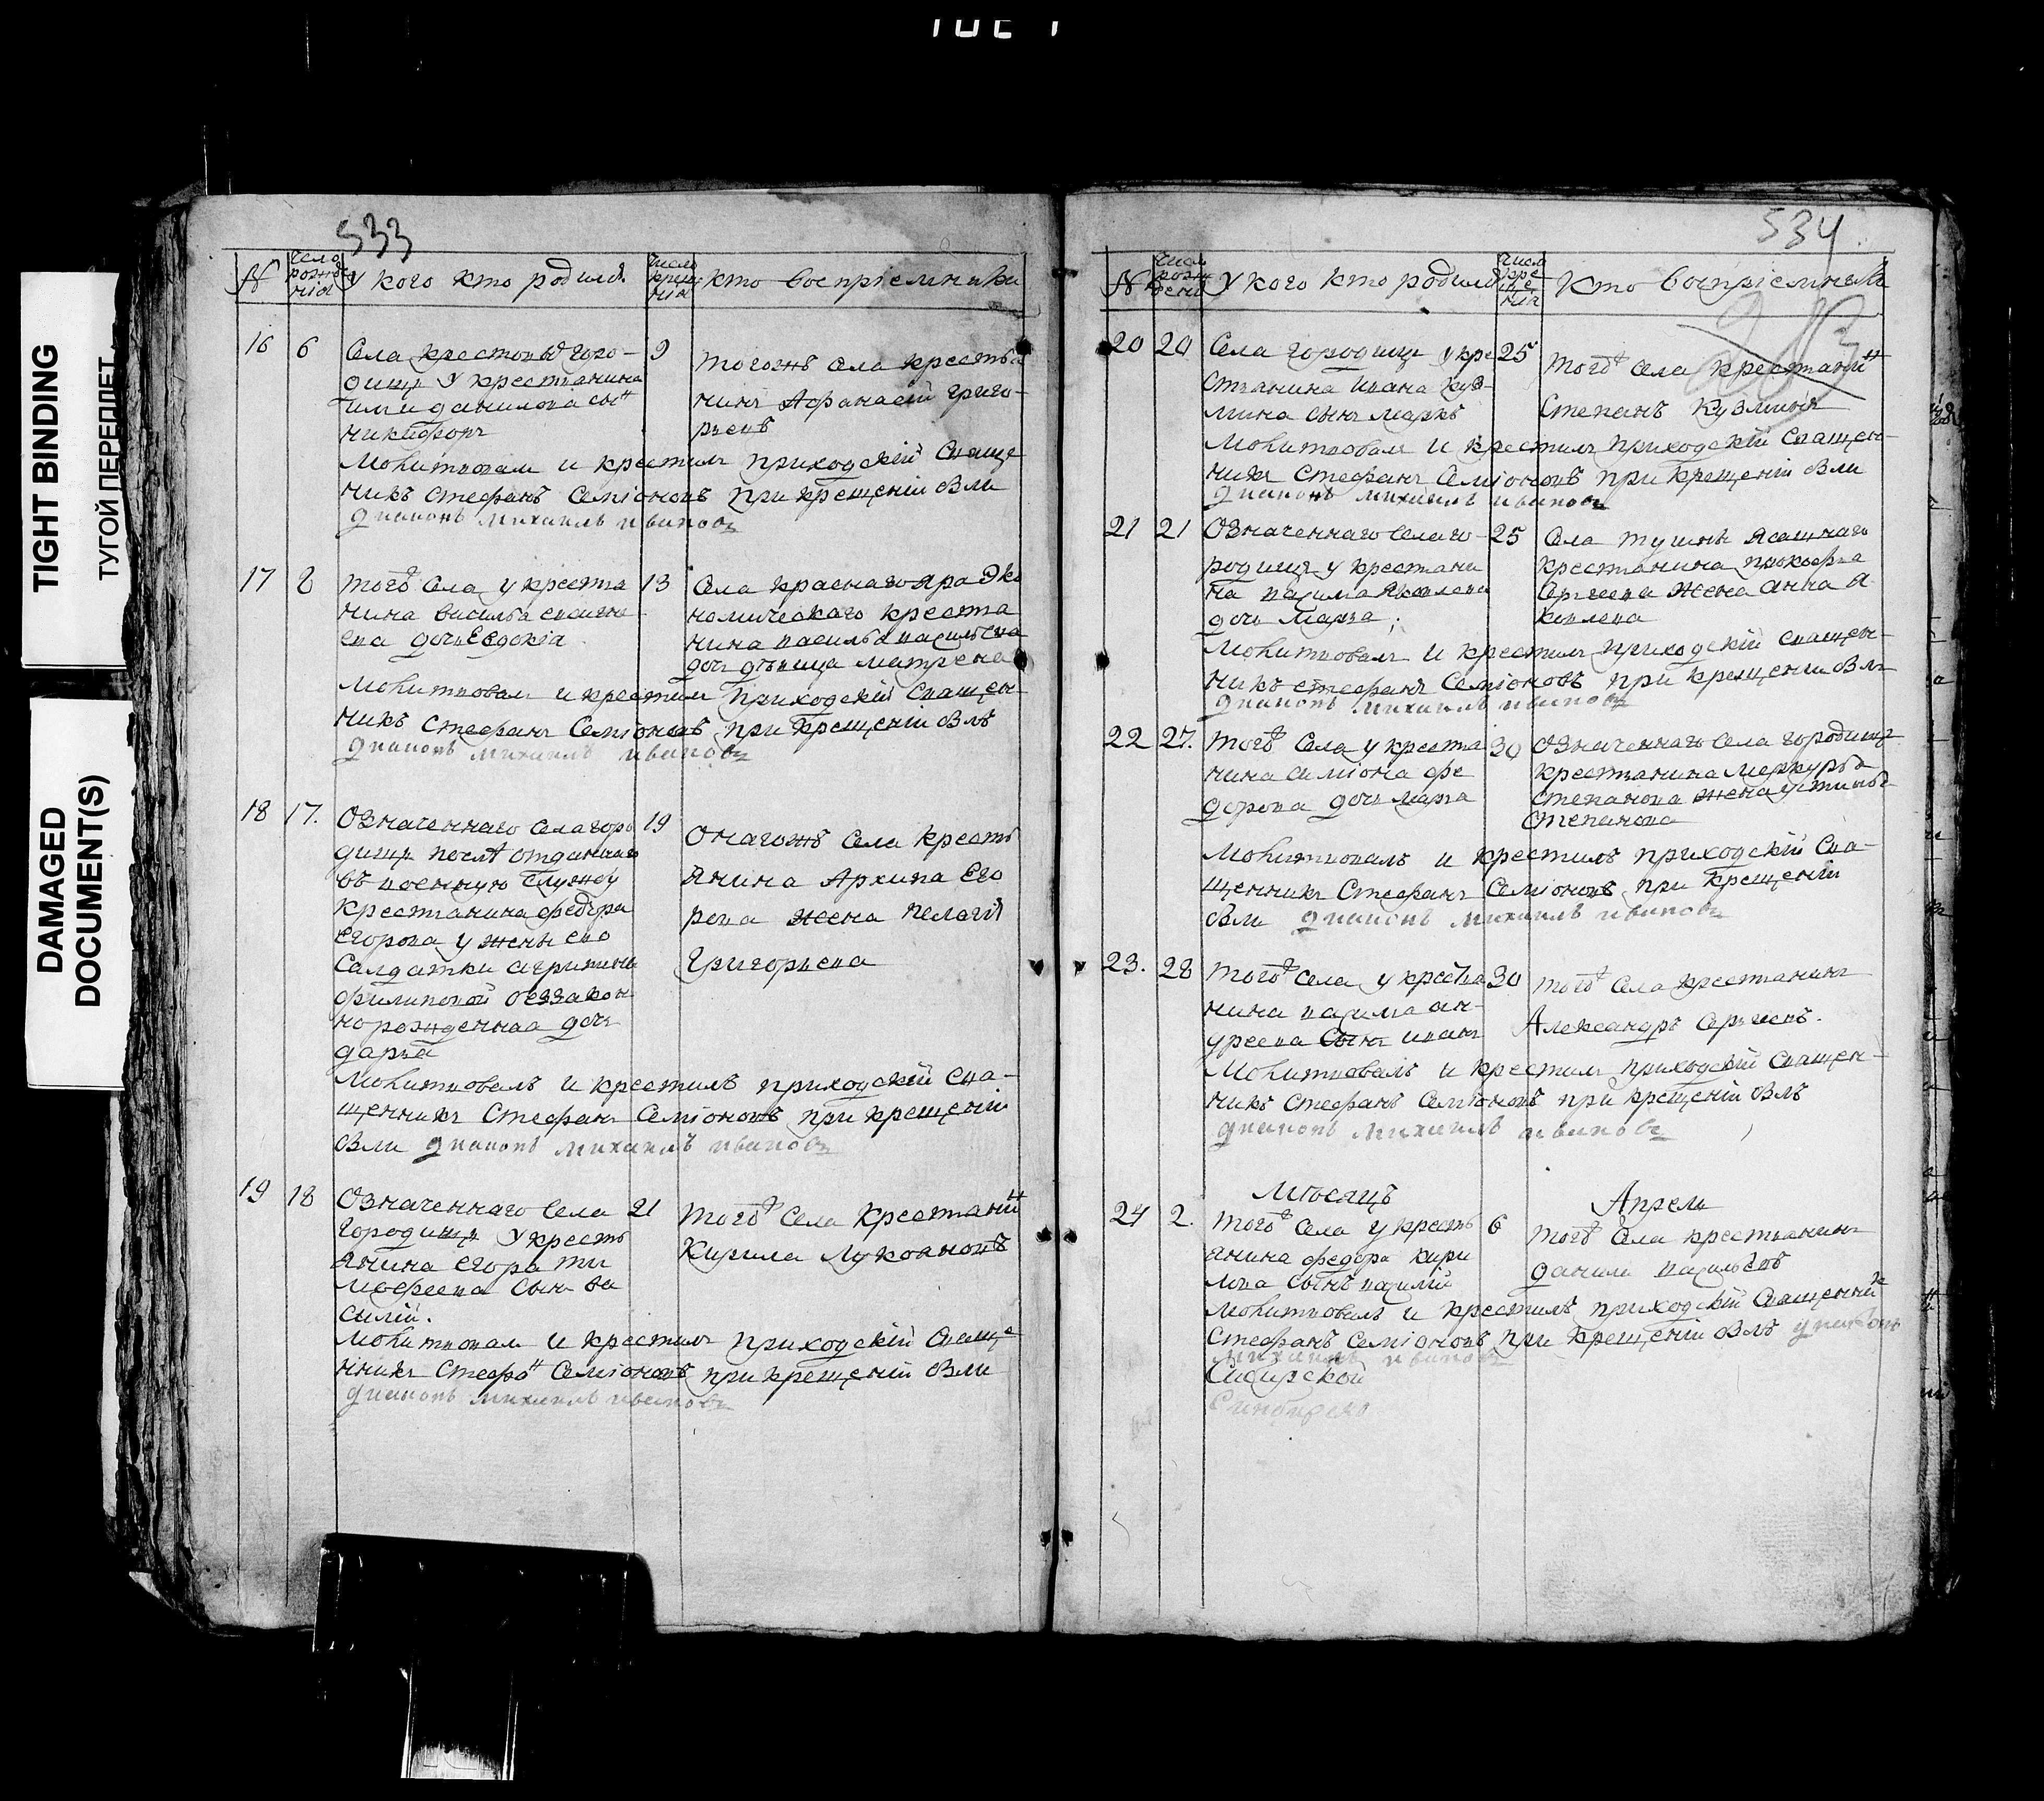 TIGHT BINDING
ТУГОЙ ПЕРЕПЛЕТ
DAMAGED
DOCUMENT(S)
533
№
число рожде нія
У кого кто родилс
число креще нія
кто воспріемники
16 6
Села крестовых горо-
дищ у крестьянина
данилова сынъ
никифоръ
9
тогожъ села крестья
нинъ Афанасій григо-
рьевъ
Молитвовалъ и крестилъ приходскій Сваще
никъ Стефанъ Семіоновъ при крещеніи были
диаконъ михаилъ ивановъ
17 8
того села у креста
нина василья
ева дочь Евдокія
13
Села краснаго яра Эко
номическаго креста
нина василья васильева
дочь дѣвица матрена
Молитвовалъ и крестилъ приходскій Сващен-
никъ Стефанъ Семіоновъ при крещеніи былъ
диаконъ михаилъ ивановъ
18 17.
Означеннаго села горо
дищ послѣ отданнаго
въ военную службу
крестьянина федора
Егорова у жены ево
Салдатки агрипины
филиповой беззакон
норожденная дочь
дарья
19
Онагожъ села кресть
янина Архипа Его
рова жена пелагія
Григорьева
Молитвовалъ и крестилъ приходскій Сва-
щенникъ Стефанъ Семіоновъ при крещеніи
были диаконъ михаилъ ивановъ
19 18
Означеннаго села
городища у кресть
янина егора ти
мофеева сынъ ва
силій.
21
того села крестьянинъ
Кирила Лукояновъ
Молитвовалъ и крестилъ приходскій Сваще
никъ Стефанъ Семіоновъ при крещеніи были
диаконъ михаилъ ивановъ
534
№
число рожде
У кого кто родилс
число кре ще нія
Кто воспріемники
20 20
Села городище у кре
стьянина ивана куз-
мина сынъ маркъ
25
того села крестьянинъ
Степанъ Кузминъ
Молитвовалъ и крестилъ приходскій сващен-
никъ Стефанъ Семіоновъ при крещеніи были
диаконъ михаилъ ивановъ
21 21
Означеннаго села го-
родища у крестьяни
на Яковлева
дочь Марѳа
25
Села тушны Ясашнаго
крестьянина прокофья
Сергеева жена анна я
ковлева
Молитвовалъ и крестилъ приходскій сващен-
никъ стефанъ Семіоновъ при крещеніи были
диаконъ михаилъ ивановъ
22 27.
того села у креста
нина симіона фе
дорова дочь Марѳа
30
Означеннаго села городища
крестьянина меркурья
степанова жена устинья
Степанова
Молитвовалъ и крестилъ приходскій Сва-
щенникъ Стефанъ Семіоновъ при крещеніи
были диаконъ михаилъ ивановъ
23. 28
того села у креста
нина ан-
дреева сынъ иванъ
30
того села крестьянинъ
Александръ Сергеевъ.
Молитвовалъ и крестилъ приходскій Сващен-
никъ Стефанъ Семіоновъ при крещеніи былъ
диаконъ михаилъ ивановъ
Мѣсяцъ Апрель
24 2.
того села у кресть
янина федора кири
лова сынъ василій
6
того села крестьянинъ
данила васильевъ
Молитвовалъ и крестилъ приходскій Сващенникъ
Стефанъ Семіоновъ при крещеніи былъ диаконъ
михаилъ ивановъ
Сибирской
Синбирско